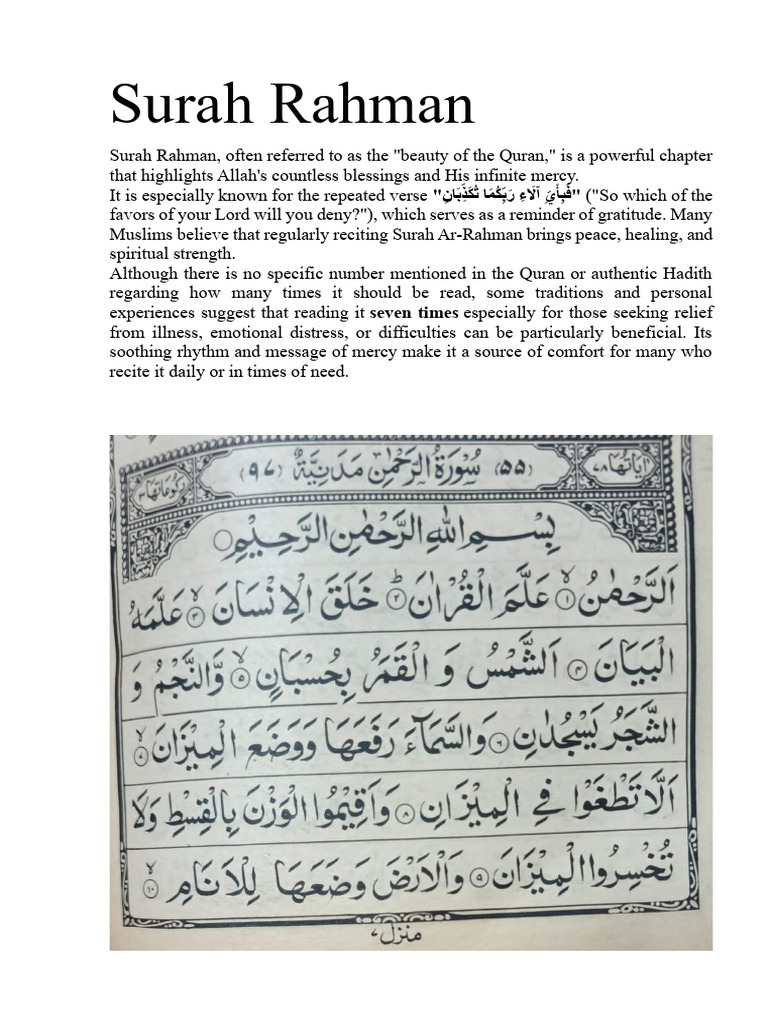 Surah Rahman
Surah Rahman, often referred to as the "beauty of the Quran," is a powerful chapter
that highlights Allah's countless blessings and His infinite mercy.
It is especially known for the repeated verse "فَبِأَيِّ آلَاءِ رَبِّكُمَا تُكَذِّبَانِ" ("So which of the
favors of your Lord will you deny?"), which serves as a reminder of gratitude. Many
Muslims believe that regularly reciting Surah Ar-Rahman brings peace, healing, and
spiritual strength.
Although there is no specific number mentioned in the Quran or authentic Hadith
regarding how many times it should be read, some traditions and personal
experiences suggest that reading it seven times especially for those seeking relief
from illness, emotional distress, or difficulties can be particularly beneficial. Its
soothing rhythm and message of mercy make it a source of comfort for many who
recite it daily or in times of need.
اٰیاتُهَا ۷۸ (۵۵) سُوْرَةُ الرَّحْمٰنِ مَدَنِيَّةٌ (۹۷) رکوعاتها ۳
بِسْمِ اللّٰهِ الرَّحْمٰنِ الرَّحِيْمِ
اَلرَّحْمٰنُ ۙ﴿۱﴾ عَلَّمَ الْقُرْاٰنَ ؕ﴿۲﴾ خَلَقَ الْاِنْسَانَ ۙ﴿۳﴾ عَلَّمَهُ
الْبَيَانَ ﴿۴﴾ اَلشَّمْسُ وَ الْقَمَرُ بِحُسْبَانٍ ۙ﴿۵﴾ وَّالنَّجْمُ وَ
الشَّجَرُ يَسْجُدٰنِ ﴿۶﴾ وَالسَّمَآءَ رَفَعَهَا وَوَضَعَ الْمِيْزَانَ ۙ﴿۷﴾
اَلَّا تَطْغَوْا فِي الْمِيْزَانِ ﴿۸﴾ وَاَقِيْمُوا الْوَزْنَ بِالْقِسْطِ وَلَا
تُخْسِرُوا الْمِيْزَانَ ﴿۹﴾ وَالْاَرْضَ وَضَعَهَا لِلْاَنَامِ ۙ﴿۱۰﴾
منزل ۷